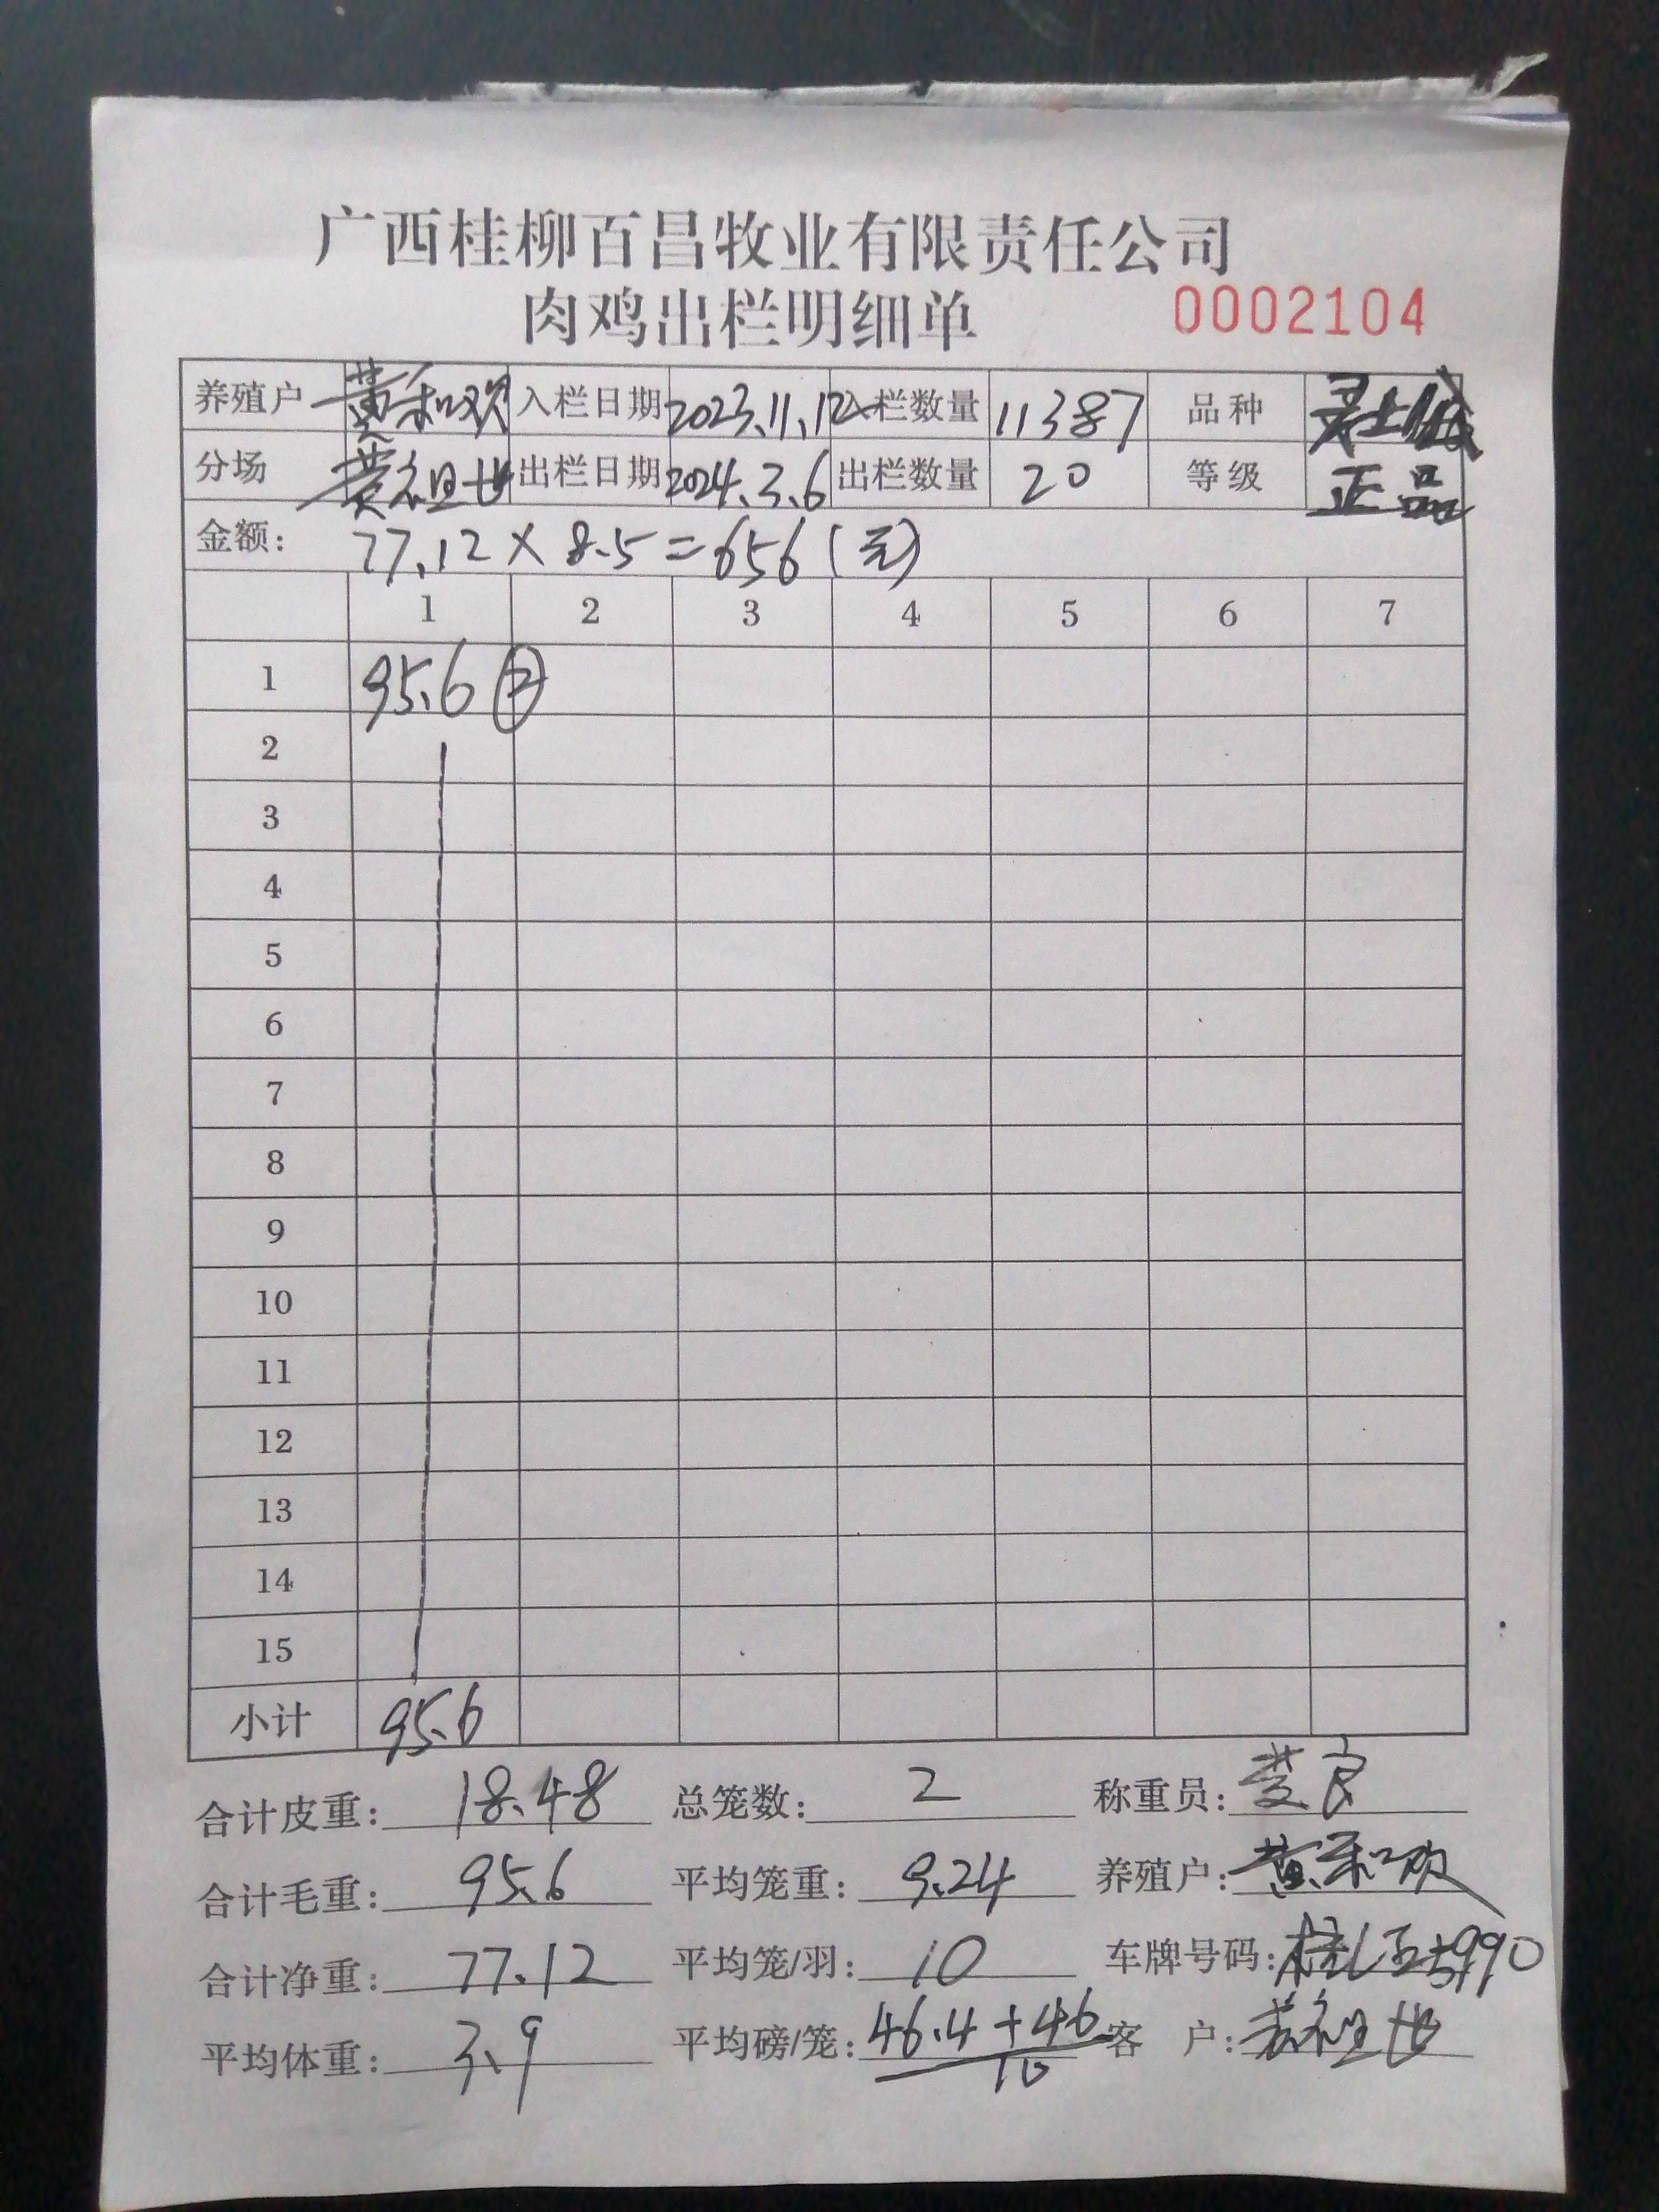 广西桂柳百昌牧业有限责任公司
肉鸡出栏明细单 0002104
养殖户 黄和欢 入栏日期 2023.11.12 入栏数量 11387 品种
分场 黄祖地 出栏日期 2024.3.6 出栏数量 20 等级 正品
金额: 77.12×8.5=656(元)
1 2 3 4 5 6 7
1 95.6 ②
2
3
4
5
6
7
8
9
10
11
12
13
14
15
小计 95.6
合计皮重: 18.48 总笼数: 2 称重员:
合计毛重: 95.6 平均笼重: 9.24 养殖户: 黄和欢
合计净重: 77.12 平均笼/羽: 10 车牌号码:
平均体重: 3.9 平均磅/笼: 46.4+46 客 户: 黄祖地
10